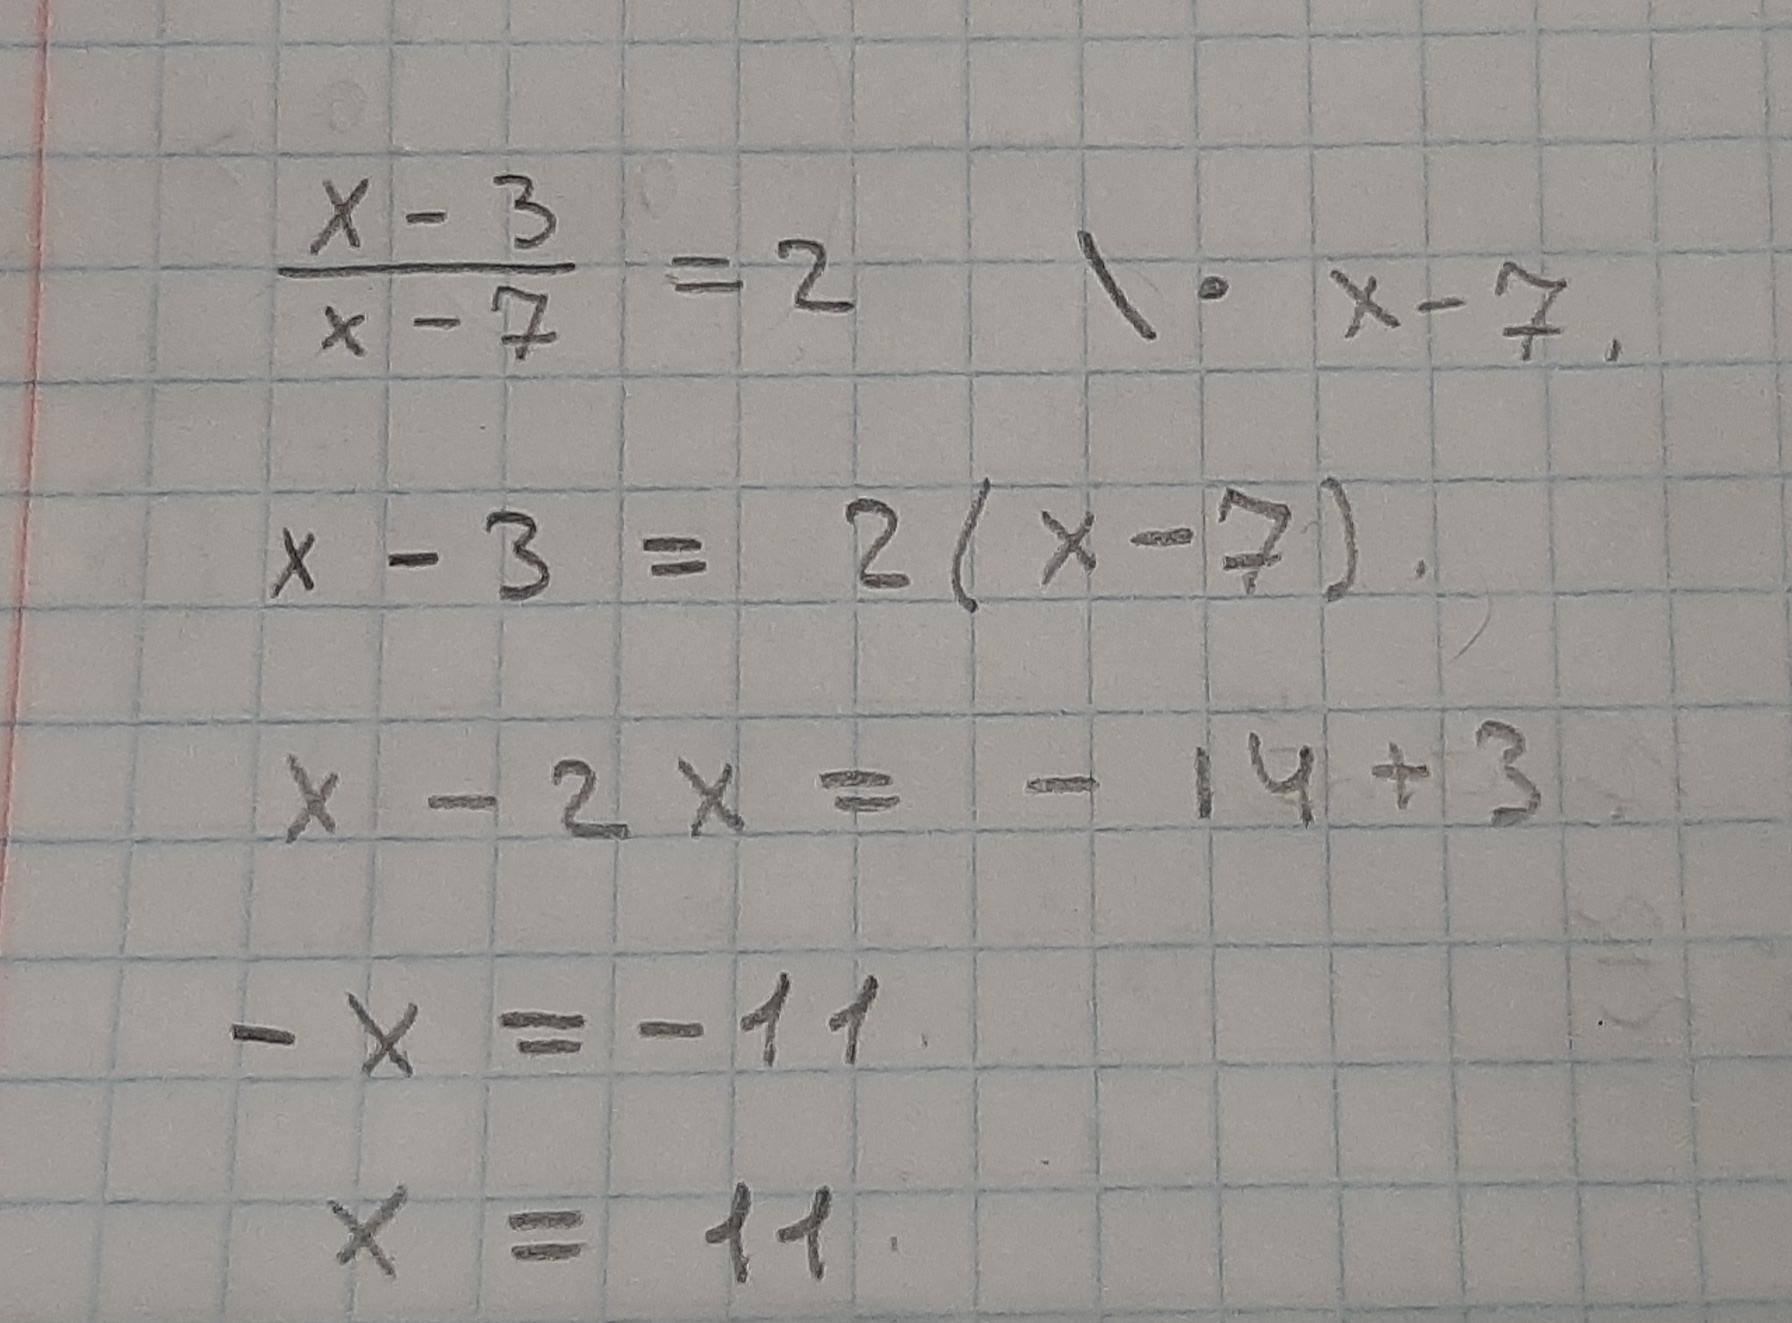 x - 3 / x - 7 = 2 \ · x - 7.
x - 3 = 2 ( x - 7 ) .
x - 2 x = - 14 + 3 .
- x = - 11 .
x = 11 .